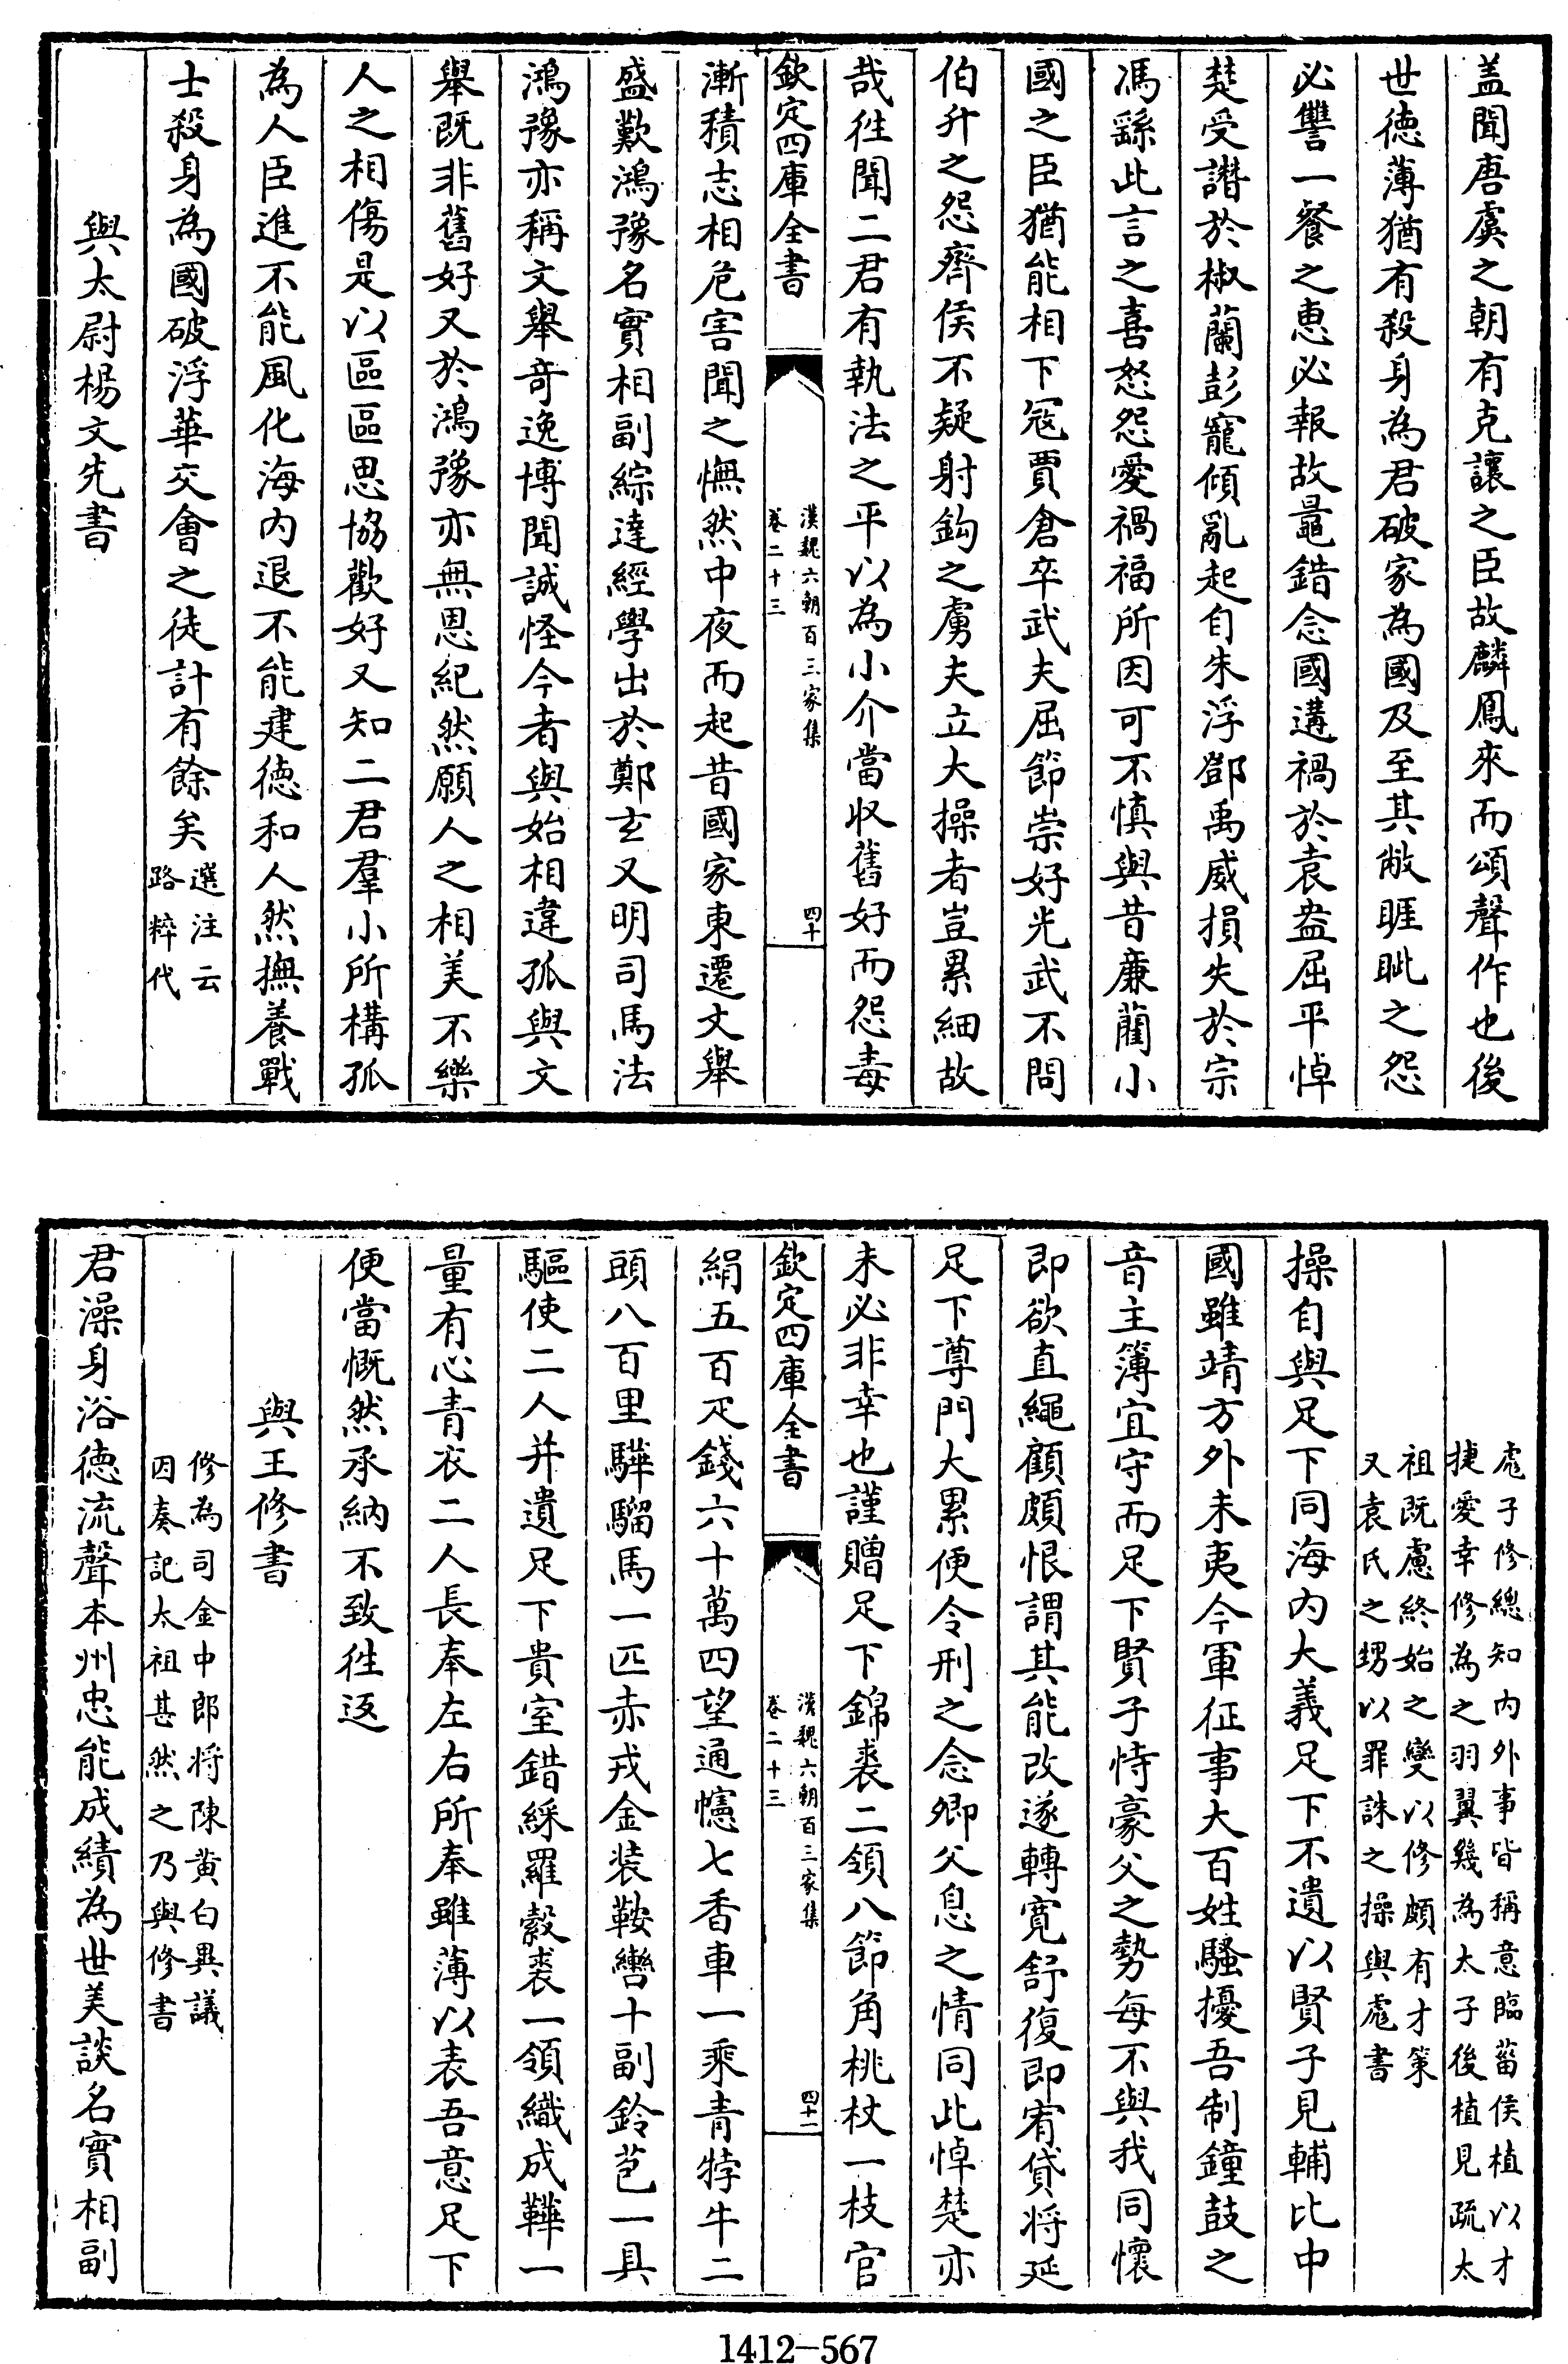 盖聞唐虞之朝有克讓之臣故麟鳳來而頌聲作也後
世徳薄猶有殺身為君破家為國及至其敝睚眦之怨
必讐一餐之惠必報故鼂錯念國遘禍於袁盎屈平悼
楚受譖於椒蘭彭寵傾亂起自朱浮鄧禹威損失於宗
馮繇此言之喜怒怨愛禍福所因可不慎與昔亷藺小
國之臣猶能相下冦賈倉卒武夫屈節崇好光武不問
伯升之怨齊侯不疑射鈎之虜夫立大操者豈累細故
哉徃聞二君有執法之平以為小介當收舊好而怨毒
欽定四庫全書
漢魏六朝百三家集
卷二十三
四十
漸積志相危害聞之憮然中夜而起昔國家東遷文舉
盛歎鴻豫名實相副綜達經學出於鄭玄又明司馬法
鴻豫亦稱文舉竒逸博聞誠怪今者與始相違孤與文
舉既非舊好又於鴻豫亦無恩紀然願人之相美不樂
人之相傷是以區區思協歡好又知二君羣小所構孤
為人臣進不能風化海内退不能建徳和人然撫養戰
士殺身為國破浮華交㑹之徒計有餘矣
選注云
路粹代
與太尉楊文先書
彪子修總知内外事皆稱意臨菑侯植以才
捷愛幸修為之羽翼幾為太子後植見疏太
祖既慮終始之變以修頗有才策
又袁氏之甥以罪誅之操與彪書
操自與足下同海内大義足下不遺以賢子見輔比中
國雖靖方外未夷今軍征事大百姓騷擾吾制鐘鼓之
音主簿宜守而足下賢子恃豪父之勢每不與我同懷
即欲直繩顧頗恨謂其能改遂轉寛舒復即宥貸将延
足下尊門大累便令刑之念卿父息之情同此悼楚亦
未必非幸也謹贈足下錦裘二領八節角桃杖一枝官
欽定四庫全書
漢魏六朝百三家集
卷二十三
四十一
絹五百疋錢六十萬四望通幰七香車一乘青㹀牛二
頭八百里驊騮馬一匹赤戎金装鞍轡十副鈴苞一具
驅使二人并遺足下貴室錯綵羅縠裘一領織成鞾一
量有心青衣二人長奉左右所奉雖薄以表吾意足下
便當慨然承納不致徃返
與王修書
修為司金中郎将陳黄白異議
因奏記太祖甚然之乃與修書
君澡身浴徳流聲本州忠能成績為世美談名實相副
1412-567